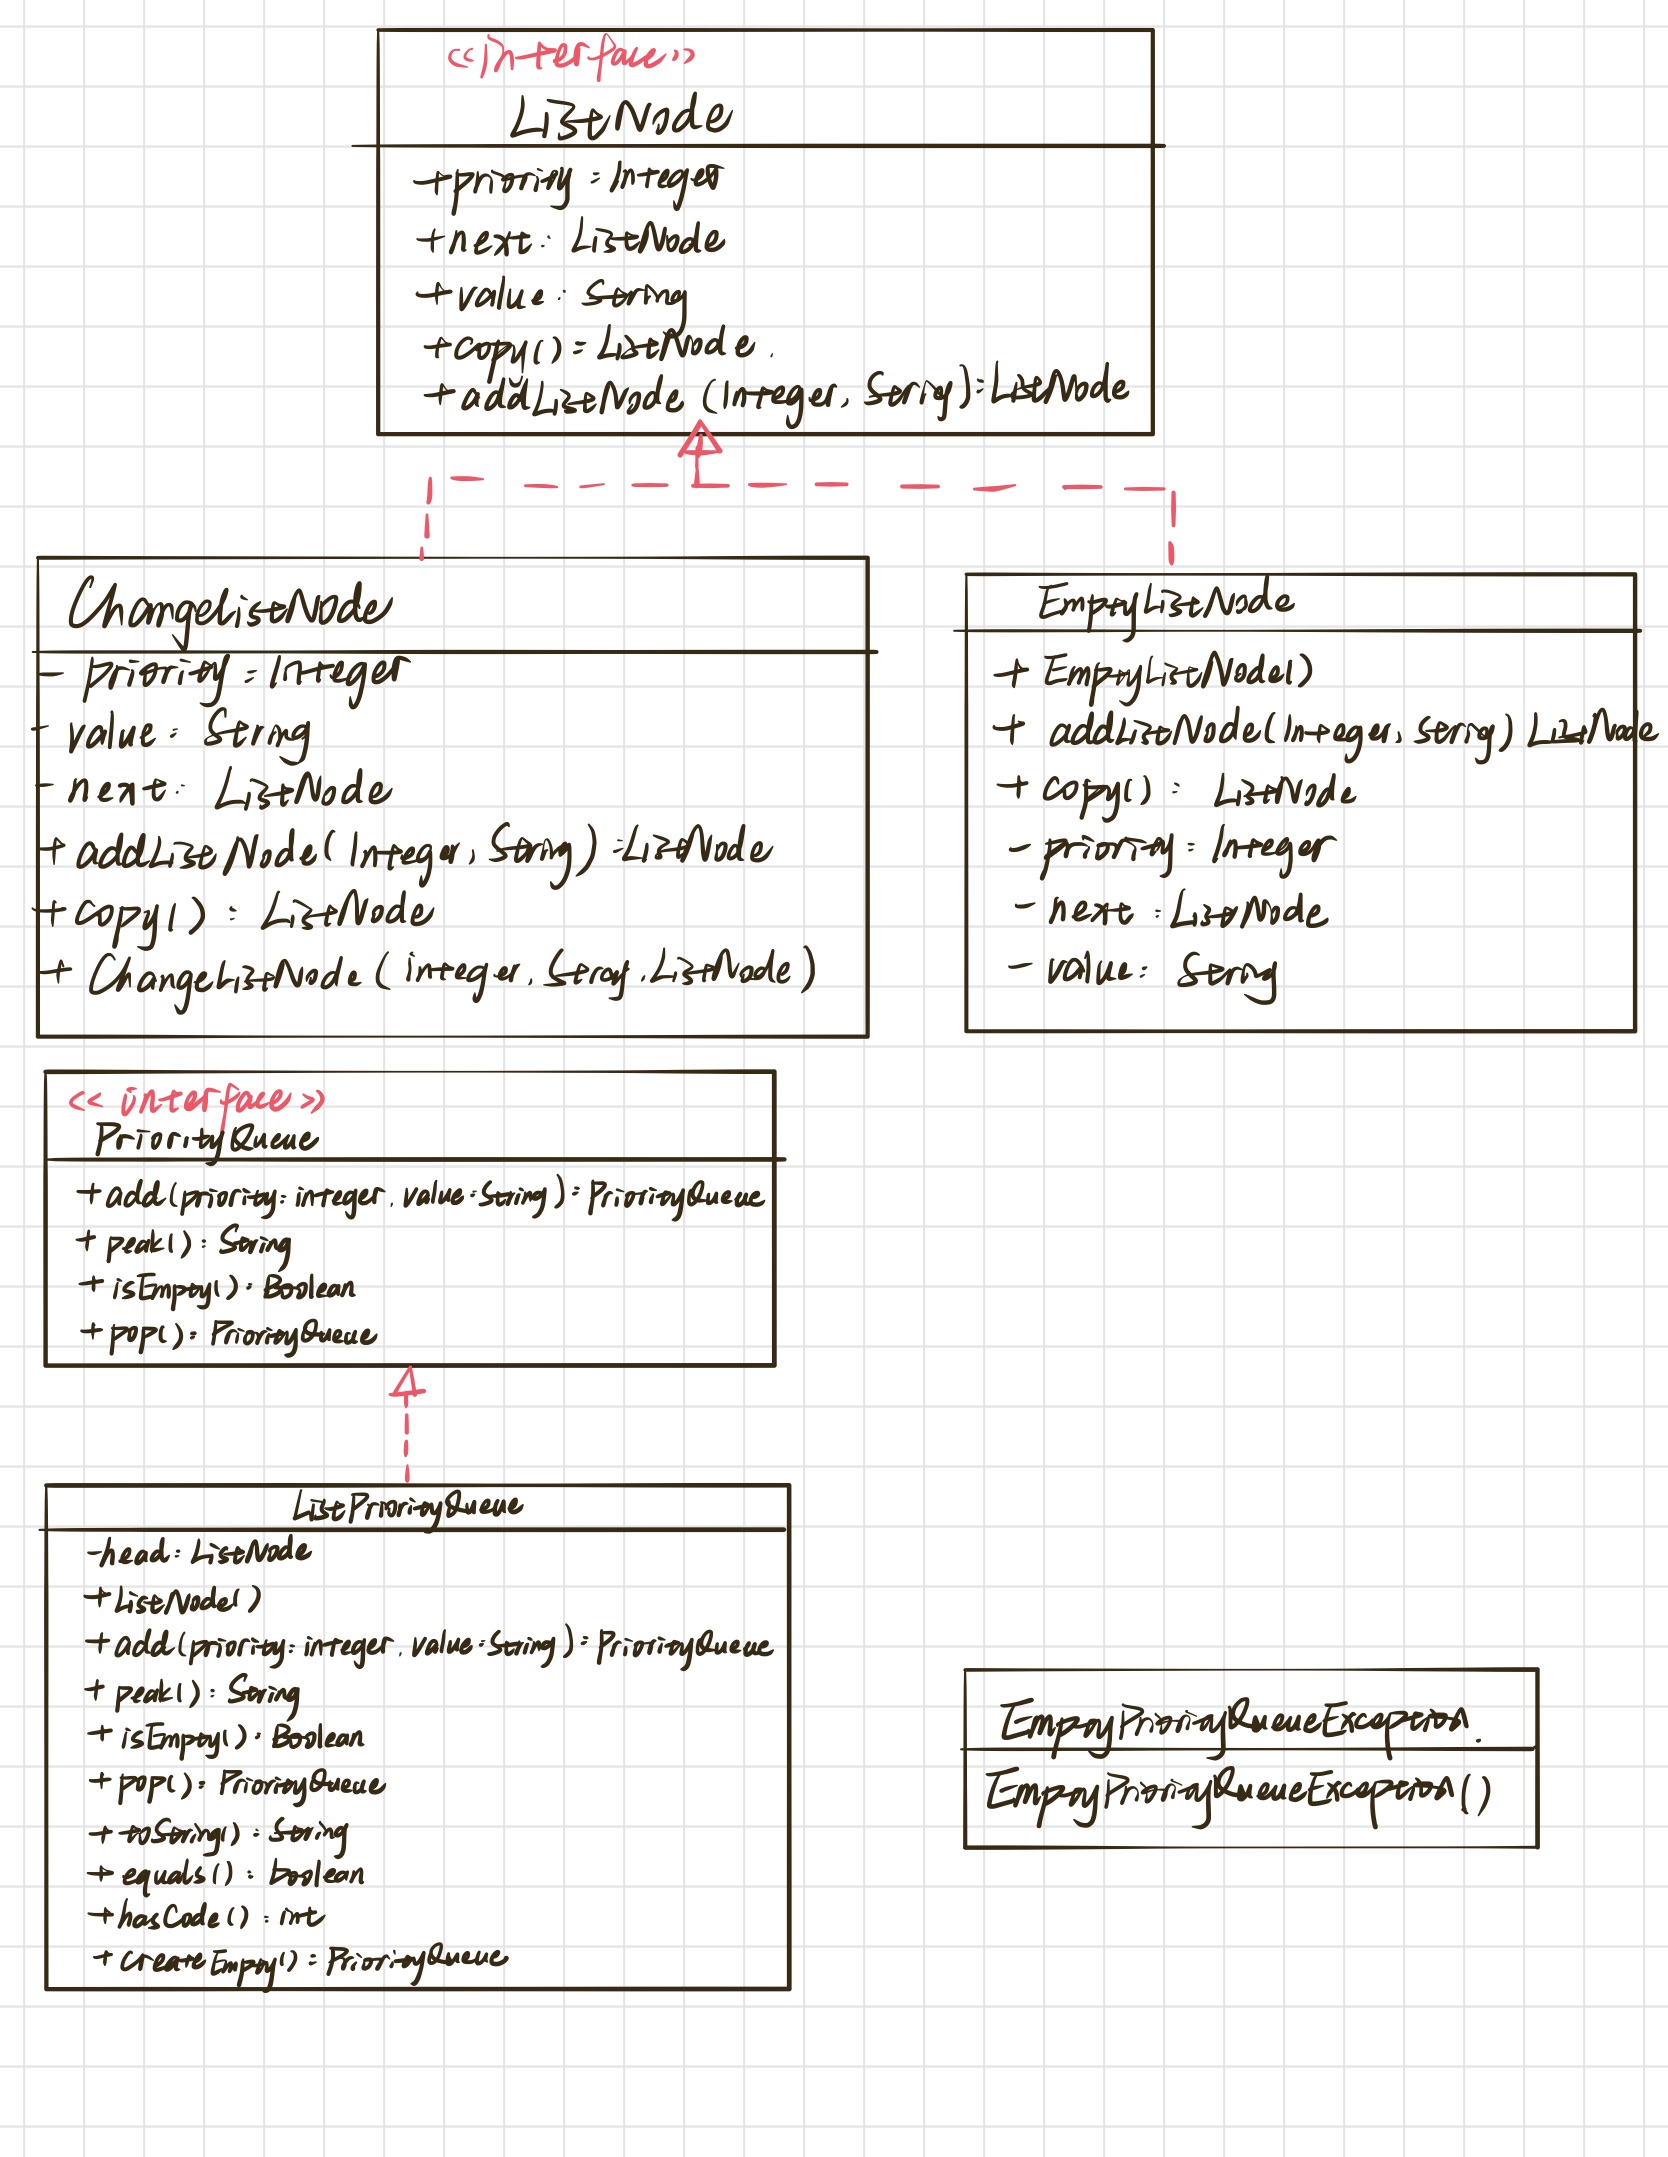 <<interface>>
ListNode
+priority : Integer
+next : ListNode
+value : String
+copy() : ListNode
+addListNode (Integer, String) : ListNode
ChangeListNode
- priority : Integer
- value : String
- next : ListNode
+ addListNode( Integer, String) : ListNode
+ copy() : ListNode
+ ChangeListNode ( integer, String, ListNode)
EmptyListNode
+ EmptyListNode()
+ addListNode(Integer, String) ListNode
+ copy() : ListNode
- priority : Integer
- next : ListNode
- value : String
<< interface >>
PriorityQueue
+ add(priority: integer, value: String) : PriorityQueue
+ peak() : String
+ isEmpty() : Boolean
+ pop() : PriorityQueue
ListPriorityQueue
-head : ListNode
+ListNode()
+ add(priority: integer, value: String) : PriorityQueue
+ peak() : String
+ isEmpty() : Boolean
+ pop() : PriorityQueue
+ toString() : String
+ equals() : boolean
+hasCode() : int
+ createEmpty() : PriorityQueue
EmptyPriorityQueueException.
EmptyPriorityQueueException()